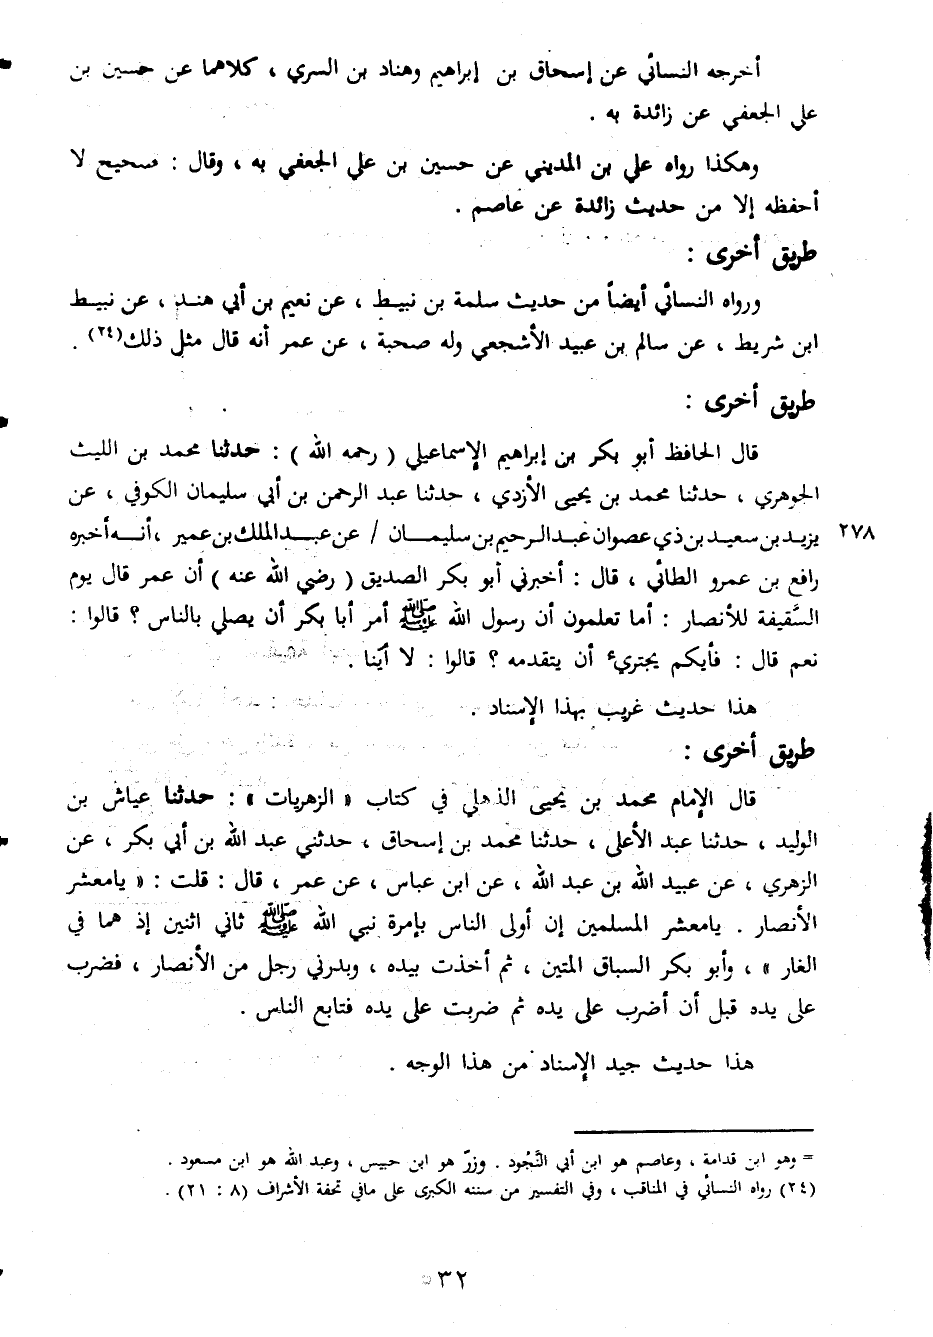 أخرجه النسائي عن إسحاق بن إبراهيم وهناد بن السري ، كلاهما عن حسين بن
علي الجعفي عن زائدة به .
وهكذا رواه علي بن المديني عن حسين بن علي الجعفي به ، وقال : صحيح لا
أحفظه إلا من حديث زائدة عن عاصم .
طريق أخرى :
ورواه النسائي أيضاً من حديث سلمة بن نبيط ، عن نعيم بن أبي هند ، عن نبيط
ابن شريط ، عن سالم بن عبيد الأشجعي وله صحبة ، عن عمر أنه قال مثل ذلك(٢٤) .
طريق أخرى :
قال الحافظ أبو بكر بن إبراهيم الإسماعيلي ( رحمه الله ) : حدثنا محمد بن الليث
الجوهري ، حدثنا محمد بن يحيى الأزدي ، حدثنا عبد الرحمن بن أبي سليمان الكوفي ، عن
٢٧٨ يزيد بن سعيد بن ذي عصوان عبد الرحيم بن سليمان / عن عبد الملك بن عمير ، أنه أخبره
رافع بن عمرو الطائي ، قال : أخبرني أبو بكر الصديق ( رضي الله عنه ) أن عمر قال يوم
السَّقيفة للأنصار : أما تعلمون أن رسول الله ﷺ أمر أبا بكر أن يصلي بالناس ؟ قالوا :
نعم قال : فأيكم يجتريء أن يتقدمه ؟ قالوا : لا أيّنا .
هذا حديث غريب بهذا الإسناد .
طريق أخرى :
قال الإمام محمد بن يحيى الذهلي في كتاب « الزهريات » : حدثنا عياش بن
الوليد ، حدثنا عبد الأعلى ، حدثنا محمد بن إسحاق ، حدثني عبد الله بن أبي بكر ، عن
الزهري ، عن عبيد الله بن عبد الله ، عن ابن عباس ، عن عمر ، قال : قلت : « يامعشر
الأنصار . يامعشر المسلمين إن أولى الناس بإمرة نبي الله ﷺ ثاني اثنين إذ هما في
الغار » ، وأبو بكر السباق المتين ، ثم أخذت بيده ، وبدرني رجل من الأنصار ، فضرب
على يده قبل أن أضرب على يده ثم ضربت على يده فتابع الناس .
هذا حديث جيد الإسناد من هذا الوجه .
= وهو ابن قدامة ، وعاصم هو ابن أبي النَّجُود . وزرّ هو ابن حبيس ، وعبد الله هو ابن مسعود .
(٢٤) رواه النسائي في المناقب ، وفي التفسير من سننه الكبرى على مافي تحفة الأشراف (٨ : ٢١) .
٣٢